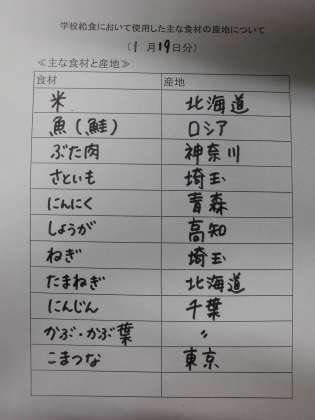 学校給食において使用した主な食材の産地について
(1月19日分)
≪主な食材と産地≫
食材 産地
米 北海道
魚(鮭) ロシア
ぶた肉 神奈川
さといも 埼玉
にんにく 青森
しょうが 高知
ねぎ 埼玉
たまねぎ 北海道
にんじん 千葉
かぶ・かぶ葉 〃
こまつな 東京